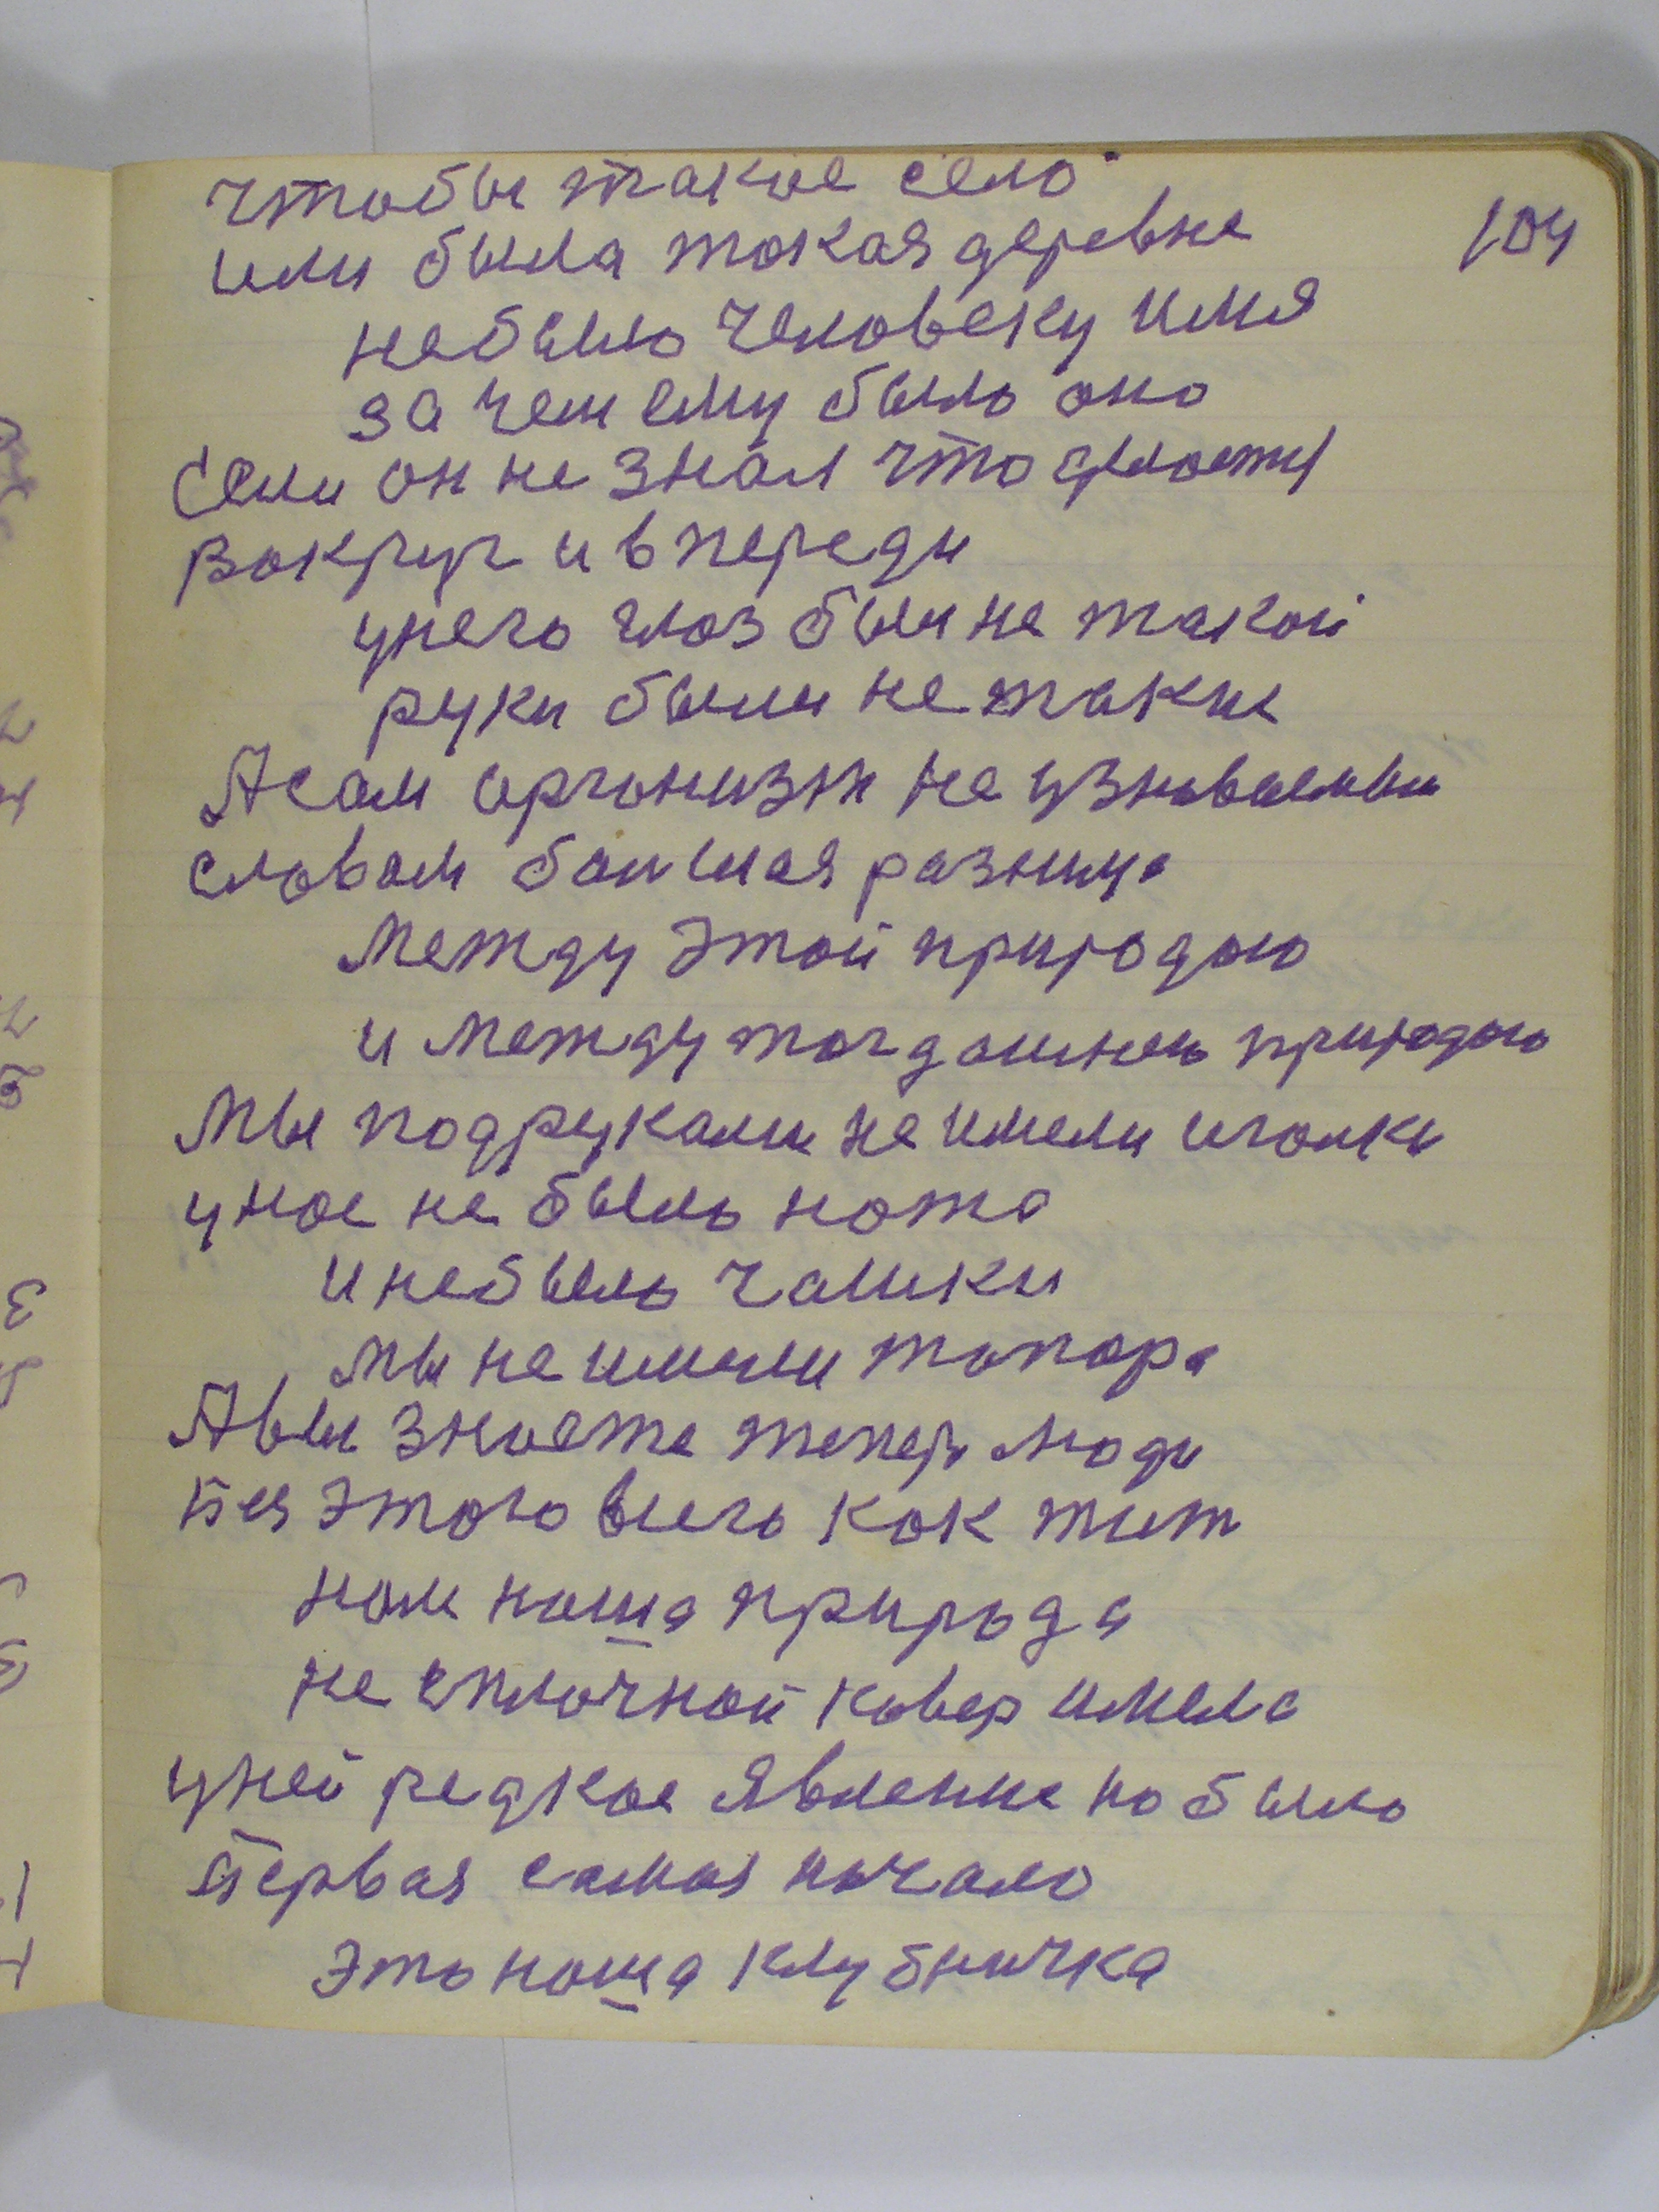 чтобы такое село
104
или была токая деревне
небыло человеку имя
за чем ему было оно
Если он не знал что
вокруг и в переди
унего глаз был не такой
руки были не такие
А сам организм не узноваемы
словом болшая разница
между этой природою
и между тогдашнею природою
Мы подруками не имели иголки
унас не было ножа
и небыло чашки
мы не имели топора
А вы знаете тепер люди
без этого всего как жит
нам наша природа
не сплочной ковер имела
уней редкое явление но было
Первая самая начало
это наша клубничка